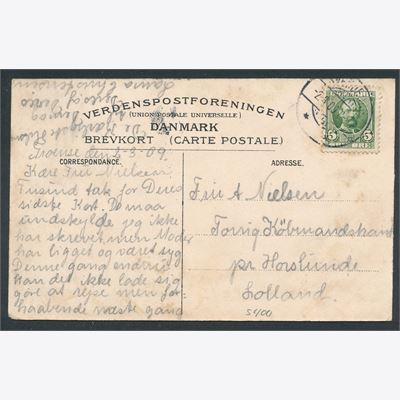 VERDENSPOSTFORENINGEN
(UNION POSTALE UNIVERSELLE)
DANMARK
BREVKORT (CARTE POSTALE)
CORRESPONDANCE.
ADRESSE.
5 5
ØRE
Troense den 2-3-09.
Kære Fru Nielsen.
Tusind tak for Deres
sidste Kort. De maa
undskylde jeg ikke
har skrevet, men Moder
har ligget og været syg
Denne gang
kan det ikke lade sig
göre at rejse men for-
haabende næste gang
Fru A Nielsen
Torrig Købmandshandel
pr Horslunde
Lolland.
5400